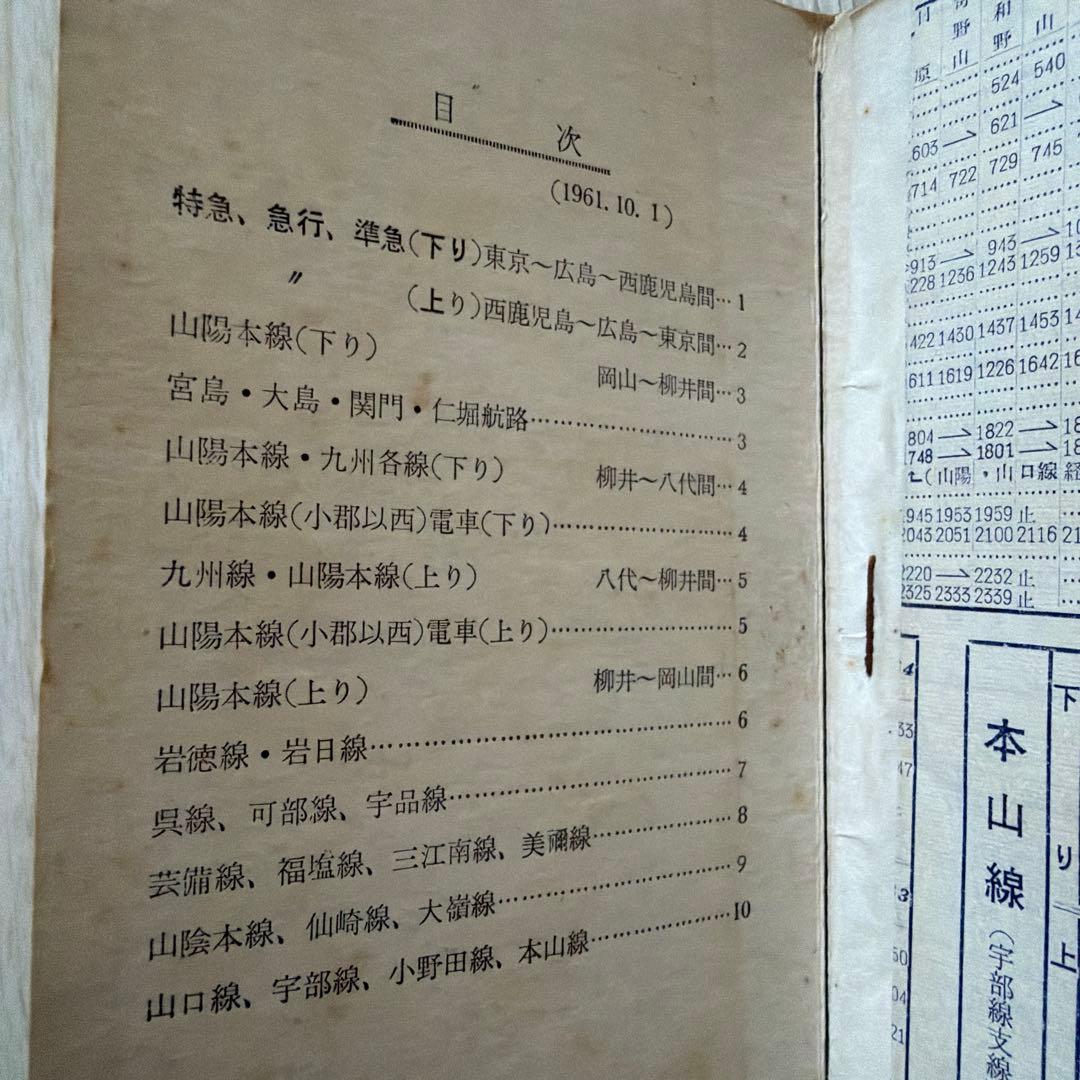 目　次
(1961.10.1)
特急、急行、準急(下り)東京～広島～西鹿児島間…1
〃 (上り)西鹿児島～広島～東京間…2
山陽本線(下り) 岡山～柳井間…3
宮島・大島・関門・仁堀航路…………………………3
山陽本線・九州各線(下り) 柳井～八代間…4
山陽本線(小郡以西)電車(下り)…………………………4
九州線・山陽本線(上り) 八代～柳井間…5
山陽本線(小郡以西)電車(上り)…………………………5
山陽本線(上り) 柳井～岡山間…6
岩徳線・岩日線…………………………………………6
呉線、可部線、宇品線…………………………………7
芸備線、福塩線、三江南線、美禰線…………………8
山陰本線、仙崎線、大嶺線……………………………9
山口線、宇部線、小野田線、本山線…………………10
野山
和野
山
524 540
621
603
714 722 729 745
913 943
228 1236 1243 1259
422 1430 1437 1453
611 1619 1226 1642
804 1822
748 1801
(山陽・山口線経
1945 1953 1959 止
2043 2051 2100 2116
2220 2232 止
2325 2333 2339 止
本山線
(宇部線支線
下り
上